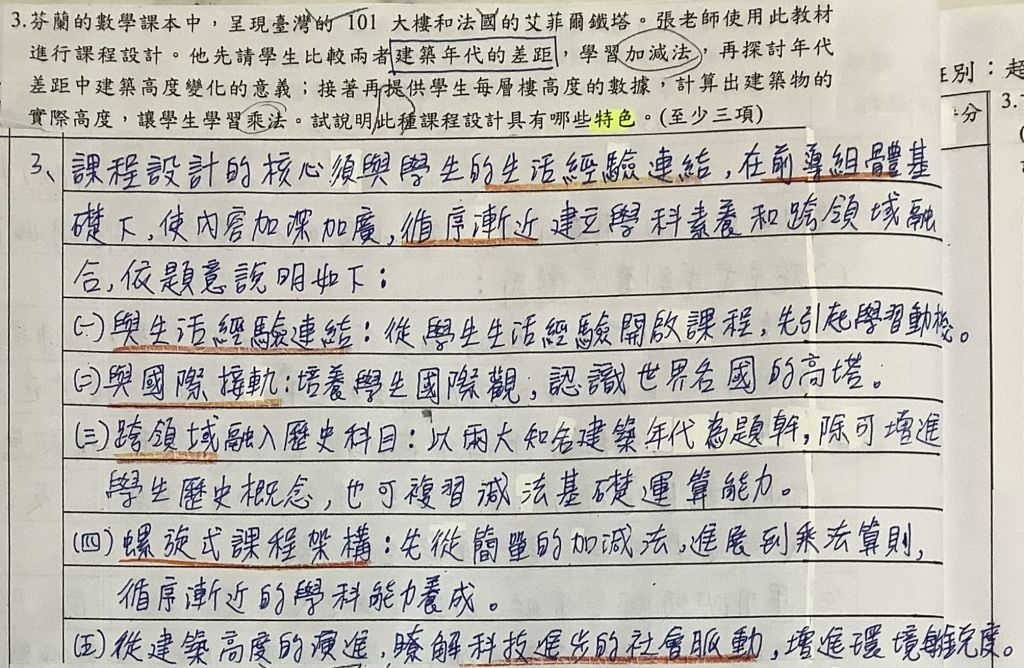 3.芬蘭的數學課本中，呈現臺灣的 101 大樓和法國的艾菲爾鐵塔。張老師使用此教材
進行課程設計。他先請學生比較兩者建築年代的差距，學習加減法，再探討年代
差距中建築高度變化的意義；接著再提供學生每層樓高度的數據，計算出建築物的
實際高度，讓學生學習乘法。試說明此種課程設計具有哪些特色。(至少三項)
3、課程設計的核心須與學生的生活經驗連結，在前導組體基
礎下，使內容加深加廣，循序漸近建立學科素養和跨領域融
合，依題意說明如下：
(一)與生活經驗連結：從學生生活經驗開啟課程，先引起學習動機。
(二)與國際接軌：培養學生國際觀，認識世界各國的高塔。
(三)跨領域融入歷史科目：以兩大知名建築年代為題幹，除可增進
學生歷史概念，也可複習減法基礎運算能力。
(四)螺旋式課程架構：先從簡單的加減法，進展到乘法算則，
循序漸近的學科能力養成。
(五)從建築高度的演進，瞭解科技進步的社會脈動，增進環境敏度。
班別：超
分
3.